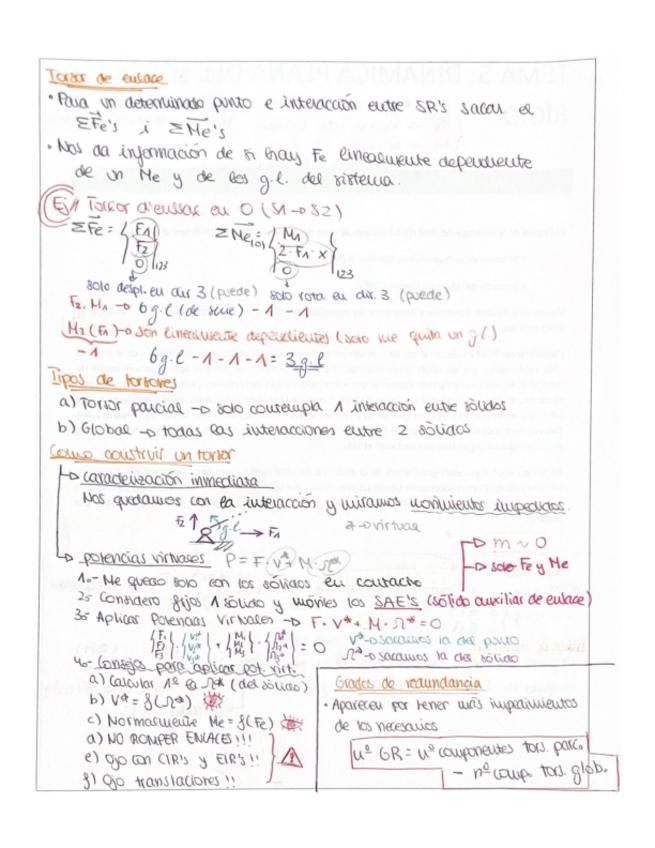 Torsor de enlace
• Para un determinado punto e interacción entre SR's sacar el
ΣFe's i ΣMe's
• Nos da información de si hay Fe linealmente dependiente
de un Me y de los g.l. del sistema.
Ej/ Torsor d'enllaç en O (S1→S2)
ΣFe = {F1 F2 0}123 ΣMe(O) = {M1 2·F1·x 0}123
solo despl. en dir 3 (puede) solo rota en dir. 3 (puede)
F2, M1 → 6 g.l (de serie) - 1 - 1
M2 (F1) → son linealmente dependientes (solo me quita un gl)
-1 6g.l - 1 - 1 - 1 = 3 g.l
Tipos de torsores
a) Torsor parcial → solo contempla 1 interacción entre sólidos
b) Global → todas las interacciones entre 2 sólidos
Como construir un torsor
↳ caracterización inmediata
Nos quedamos con la interacción y miramos movimientos impedidos.
F2 ↑ g.l. → F1
* → virtual
↳ potencias virtuales P = F·V* + M·Ω*
→ m ~ 0
→ solo Fe y Me
1o- Me quedo solo con los sólidos en contacto
2o- Considero fijos 1 sólido y móviles los SAE's (sólido auxiliar de enlace)
3o- Aplicar Potencias Virtuales → F·V* + M·Ω* = 0
{F1 F2 F3}·{V1* V2* V3*} + {M1 M2 M3}·{Ω1* Ω2* Ω3*} = 0
V* → sacamos la del punto
Ω* → sacamos la del sólido
4o- Consejos para aplicar pot. virt.
a) Calcular 1º la Ω* (del sólido)
b) V* = f(Ω*)
c) Normalmente Me = f(Fe)
d) NO ROMPER ENLACES!!!
e) Ojo con CIR's y EIR's!!
f) Ojo translaciones!!
Grados de redundancia
• Aparecen por tener más impedimentos
de los necesarios
nº GR = nº componentes tors. parc.
- nº comp. tors. glob.